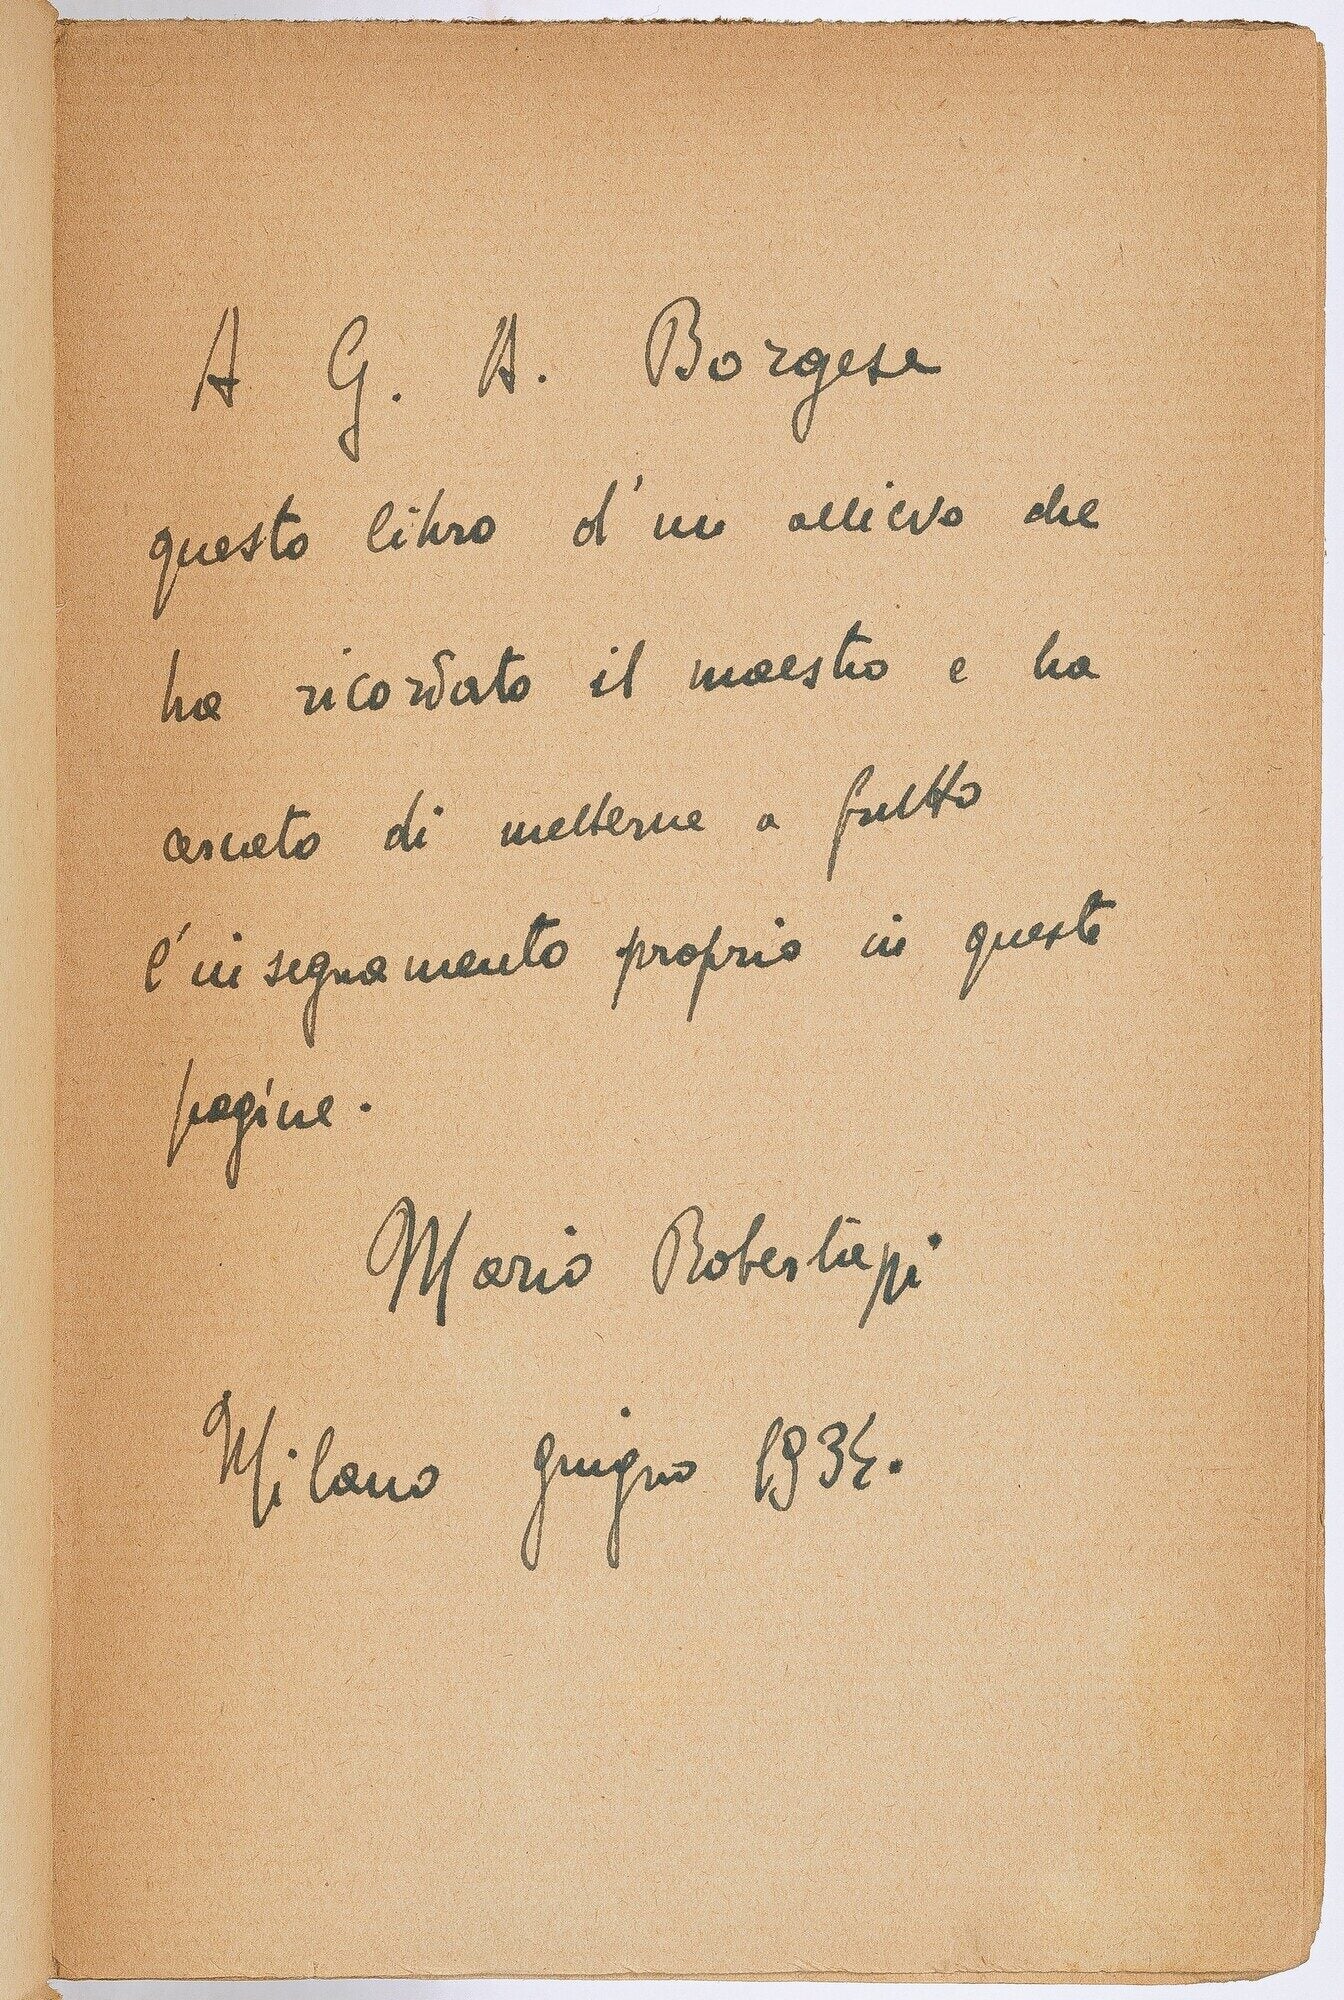 A G. A. Borgese
questo libro d'un allievo che
ha ricordato il maestro e ha
cercato di metterne a frutto
l'insegnamento proprio in queste
pagine.
Mario Robertazzi
Milano giugno 1934.